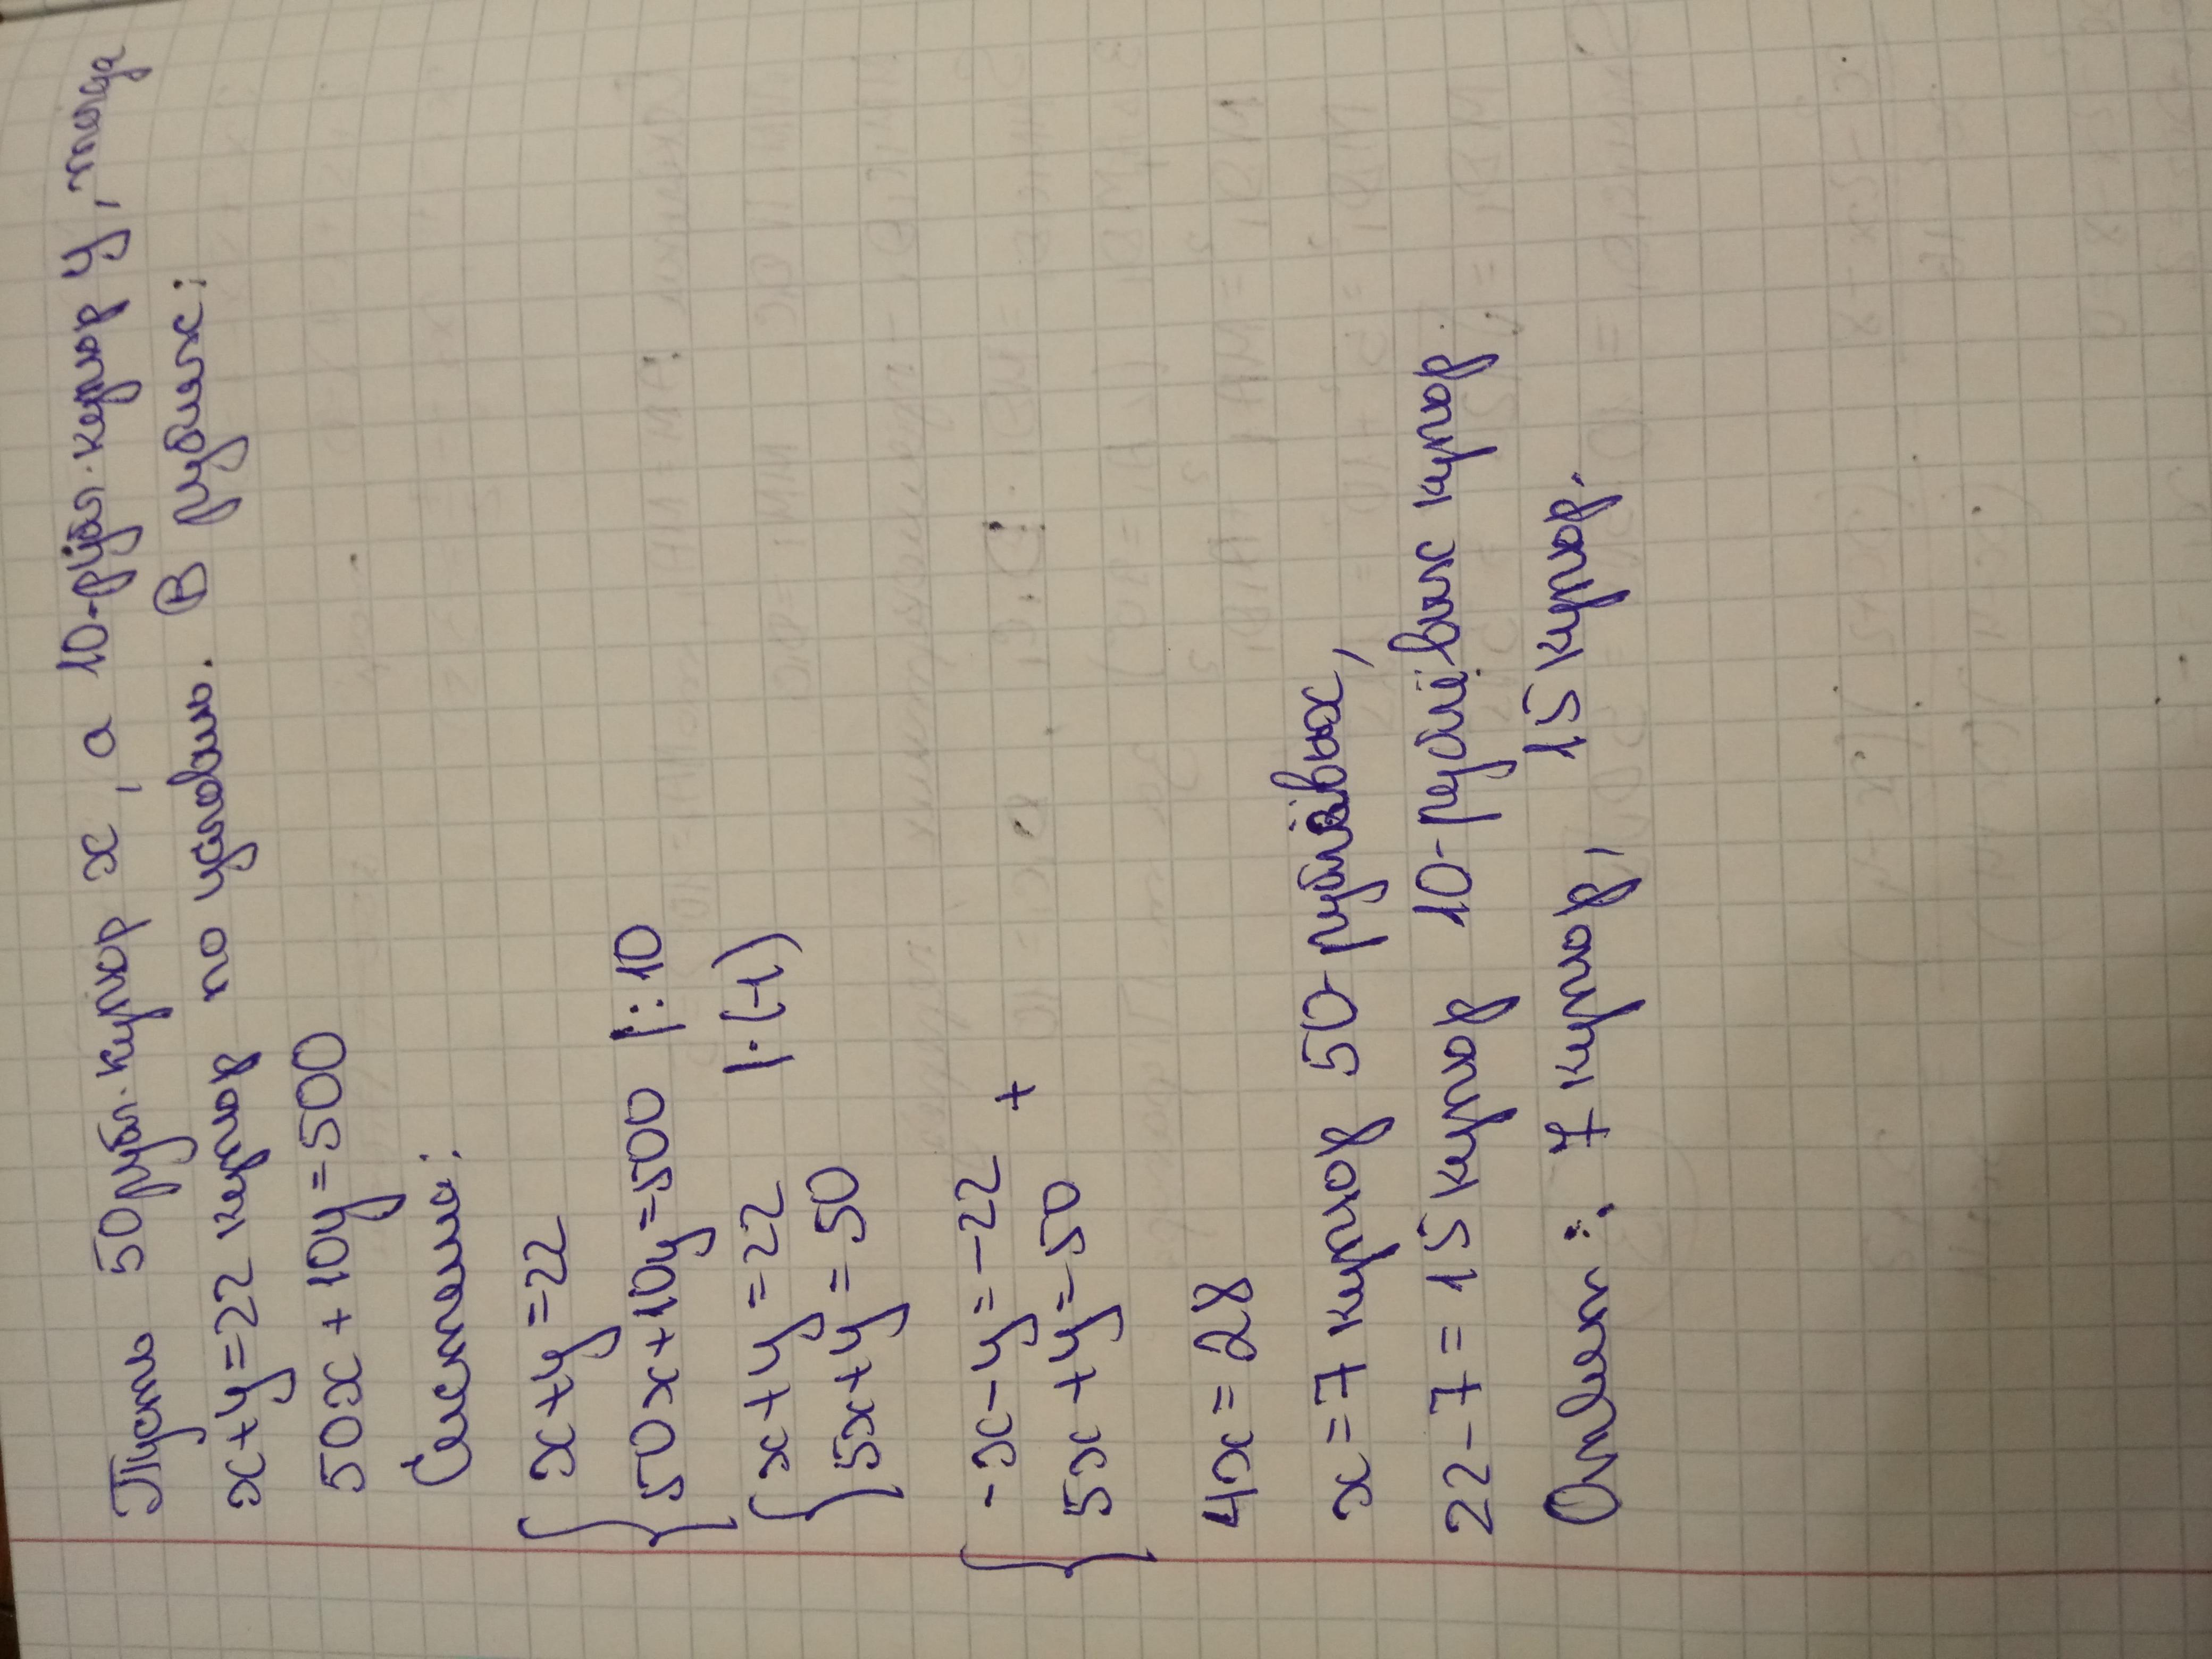 Пусть 50рубл. купюр x, а 10-рубл. купюр y, тогда
x+y=22 купюр по условию. В рублях:
50x+10y=500
Система:
x+y=22
50x+10y=500 |:10
x+y=22 |·(-1)
5x+y=50
-x-y=-22 +
5x+y=50
4x=28
x=7 купюр 50-рублёвых,
22-7=15 купюр 10-рублёвых купюр
Ответ: 7 купюр, 15 купюр.